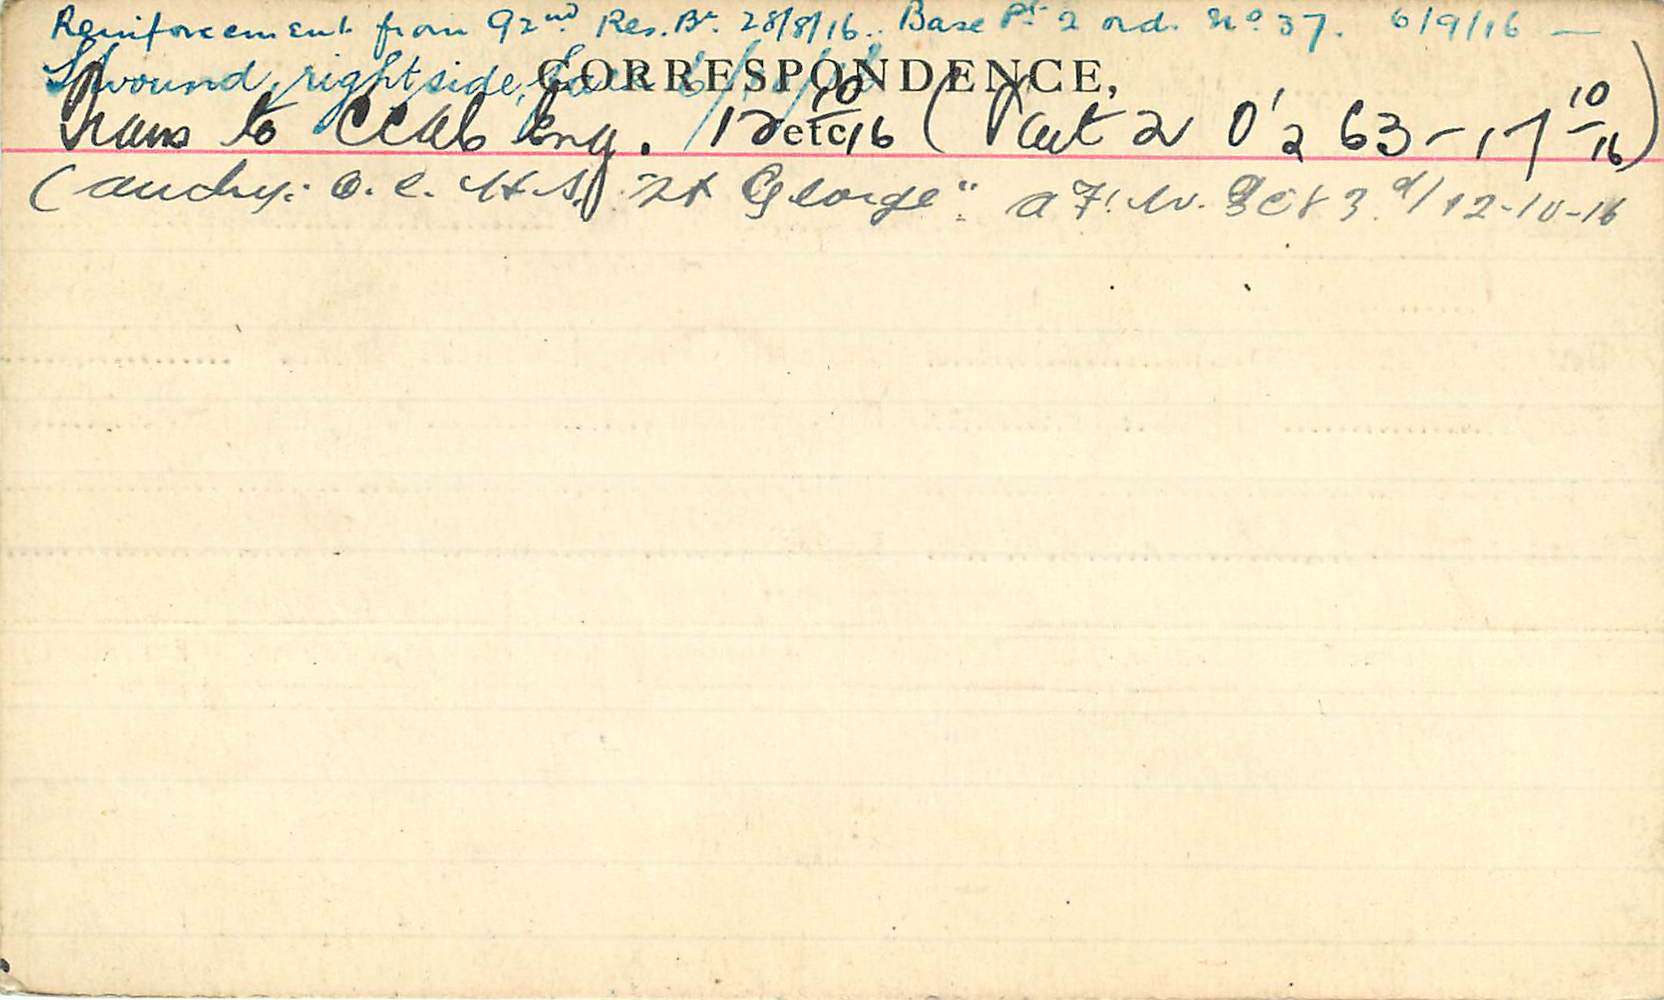 Reinforcement from 92nd Res. Bn. 28/8/16.. Base Pt 2 ord. No 37. 6/9/16 —
CORRESPONDENCE,
S wound, right side, face 6/10/16
Trans to CCAC Eng. 12 10/16 (Part 2 O's 63 - 17 10/16)
etc.
(authy: O.C. H.S. "St George". A.F.W. 3083 d/ 12-10-16